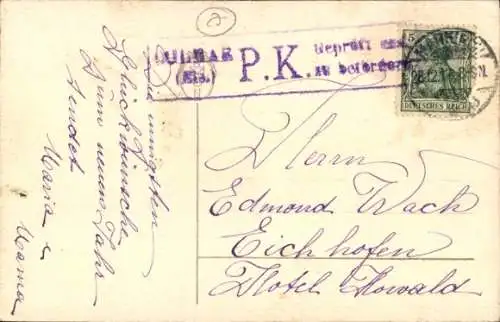 COLMAR
(Els.)
P.K.
Geprüft und
zu befördern
5
28.12.1
DEUTSCHES REICH
Die innigsten
Glückwünsche
zum neuen Jahr
sendet
Maria &
Mama
Herrn
Edmond Wach
Eichhofen
Hotel Howald